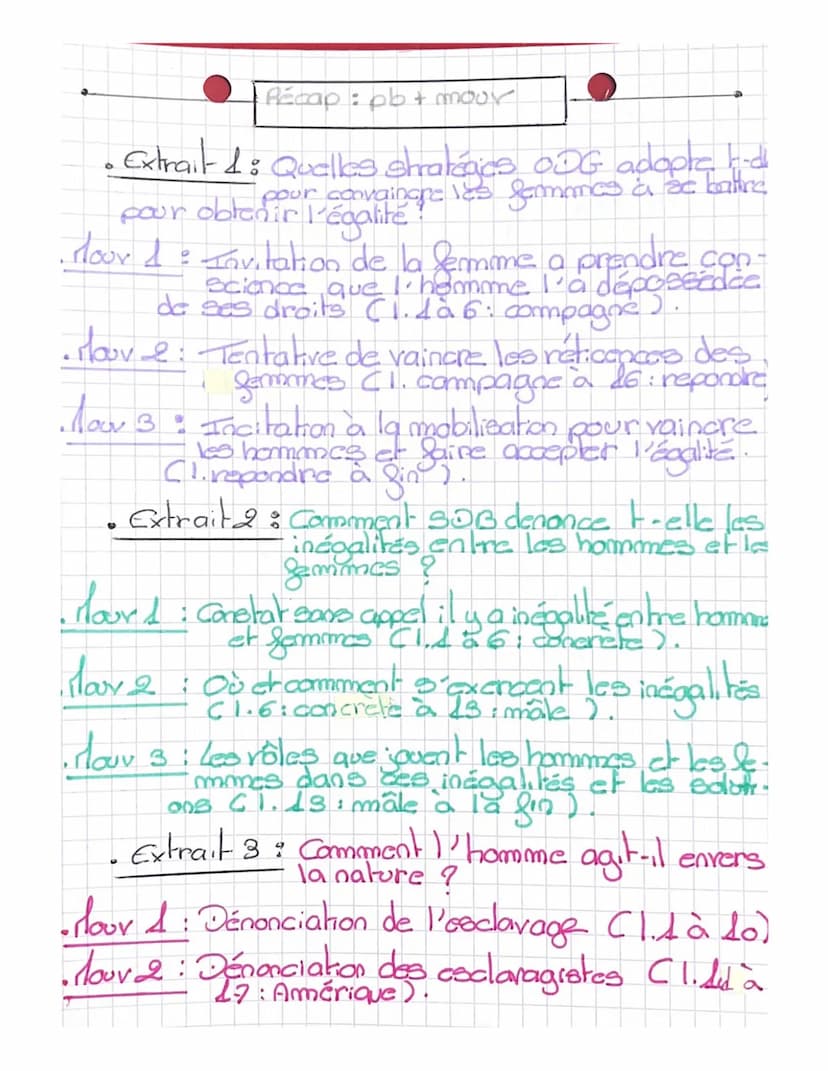 Récap : pb + mouv
• Extrait 1 : Quelles stratégies ODG adopte t-el
pour convaincre les femmes à se battre
pour obtenir l'égalité ?
• Mouv 1 : Invitation de la femme a prendre con-
science que l'homme l'a dépossédée
de ses droits (l.1 à 6 : compagne).
• Mouv 2 : Tentative de vaincre les réticences des
femmes (l. compagne à 16 : repondre
• Mouv 3 : Incitation à la mobilisation pour vaincre
les hommes et faire accepter l'égalité.
(l. repondre à fin).
• Extrait 2 : Comment SDB denonce t-elle les
inégalités entre les hommes et les
femmes ?
• Mouv 1 : Constat sans appel il y a inégalité entre homme
et femmes (l.1 à 6 : concrète).
• Mouv 2 : Où et comment s'exercent les inégalités
(l.6 : concrète à 13 : mâle).
• Mouv 3 : Les rôles que jouent les hommes et les fe-
mmes dans ces inégalités et les soluti-
ons (l. 13 : mâle à la fin).
• Extrait 3 : Comment l'homme agit-il envers
la nature ?
• Mouv 1 : Dénonciation de l'esclavage (l.1 à 10)
• Mouv 2 : Dénonciation des esclavagistes (l.11 à
17 : Amérique).